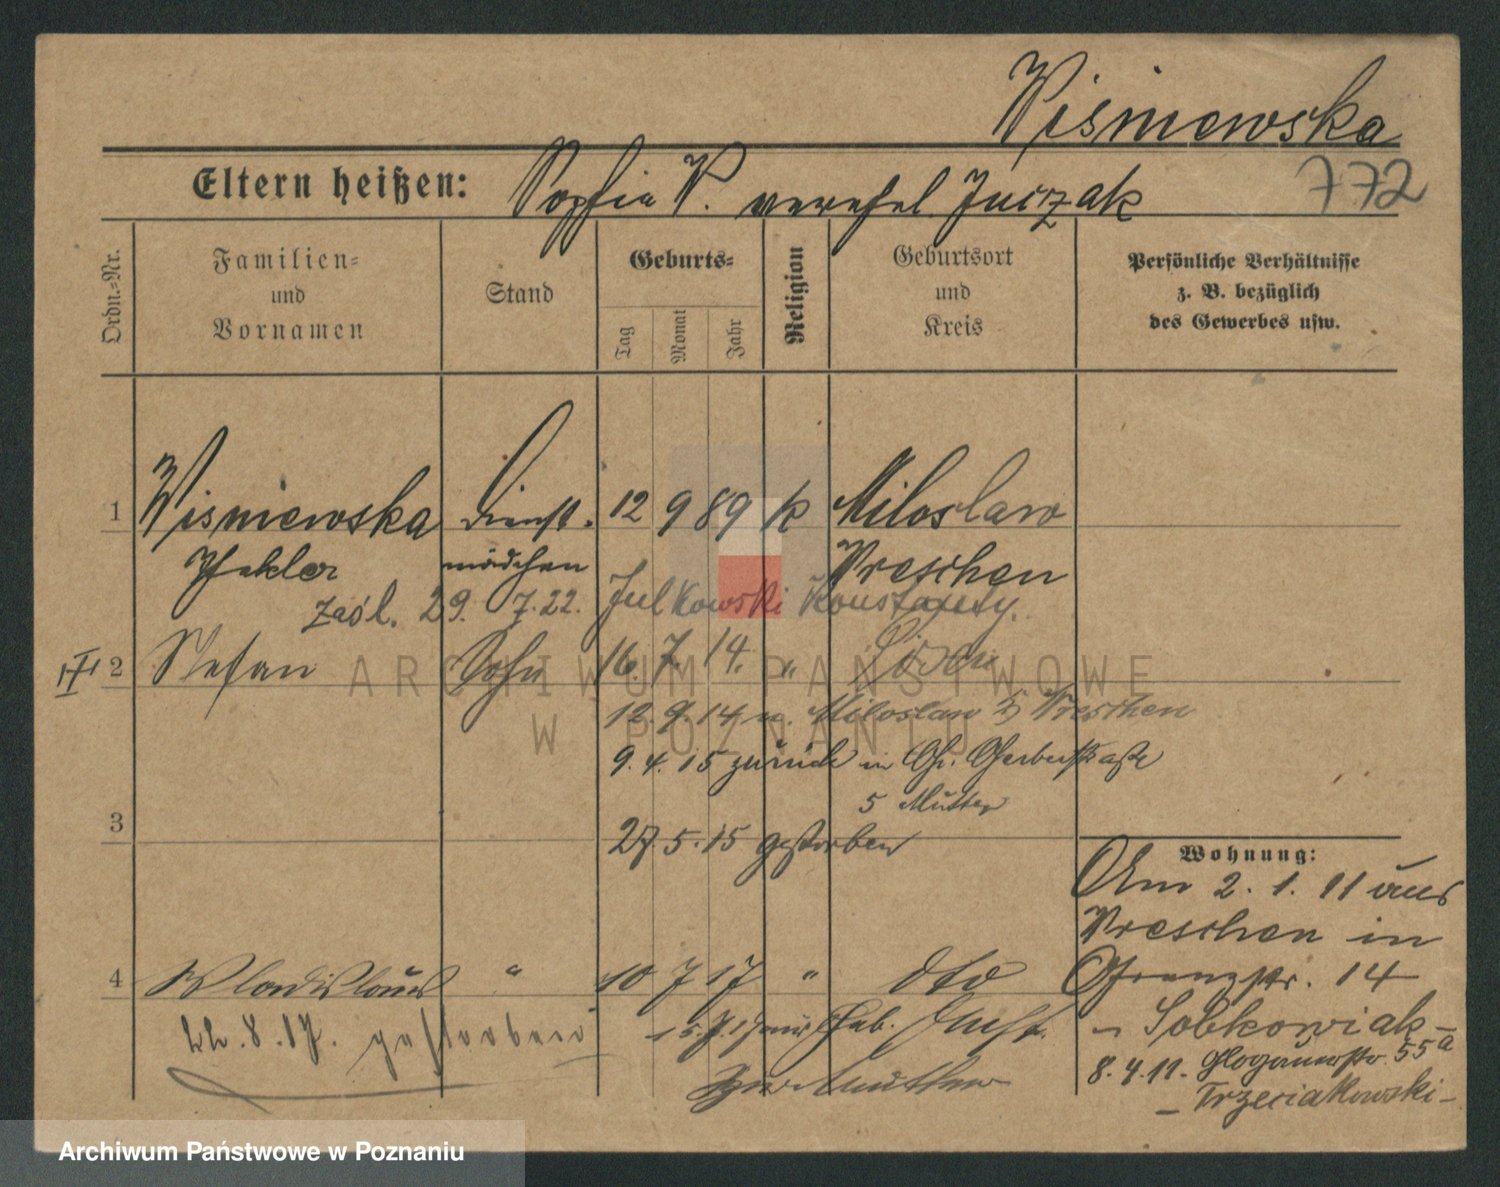 Wisniewska
772
Eltern heißen: Sophia W. verehel. Juszak
Ordn.-Nr.
Familien- und Vornamen
Stand
Geburts-
Tag
Monat
Jahr
Religion
Geburtsort und Kreis
Persönliche Verhältnisse z. B. bezüglich des Gewerbes usw.
1 Wisniewska Dienst- 12 9 89 K Miloslaw
mädchen Wreschen
zaśl. 29. 7. 22. Julkowski Konstanty.
2 Stefan Sohn 16. 7. 14. "
12. 9. 14 n. Miloslaw Kr Wreschen
9. 4. 15 zurück in Gr. Gerberstraße
5 Mutter
3
27. 5. 15 gestorben
Wohnung:
Am 2. 1. 11 aus
Wreschen in
Grenzstr. 14
4 Wladislaus " 10 7 17 " dto
- Sobkowiak -
8.17. gestorben
zur Mutter
8. 4. 11. Glogauerstr. 55a
- Trzeciakowski -
ARCHIWUM PAŃSTWOWE
W POZNANIU
Archiwum Państwowe w Poznaniu